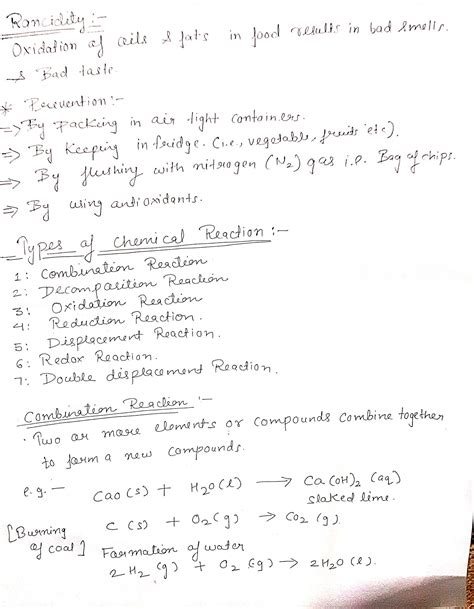 Rancidity :-
Oxidation of oils & fats in food results in bad smells.
& Bad taste
* Prevention :-
=> By Packing in air tight containers.
=> By Keeping in fridge. (i.e., vegetable, fruits etc).
=> By flushing with nitrogen (N2) gas i.e. Bag of chips.
=> By using antioxidants.
Types of Chemical Reaction :-
1: Combination Reaction
2: Decomposition Reaction
3: Oxidation Reaction
4: Reduction Reaction.
5: Displacement Reaction.
6: Redox Reaction.
7: Double displacement Reaction.
Combination Reaction :-
· Two or more elements or compounds combine together
to form a new compounds.
e.g. — CaO (s) + H2O (l) → Ca(OH)2 (aq)
slaked lime.
[Burning of coal] C (s) + O2 (g) → CO2 (g).
Formation of water
2H2 (g) + O2 (g) → 2H2O (l).